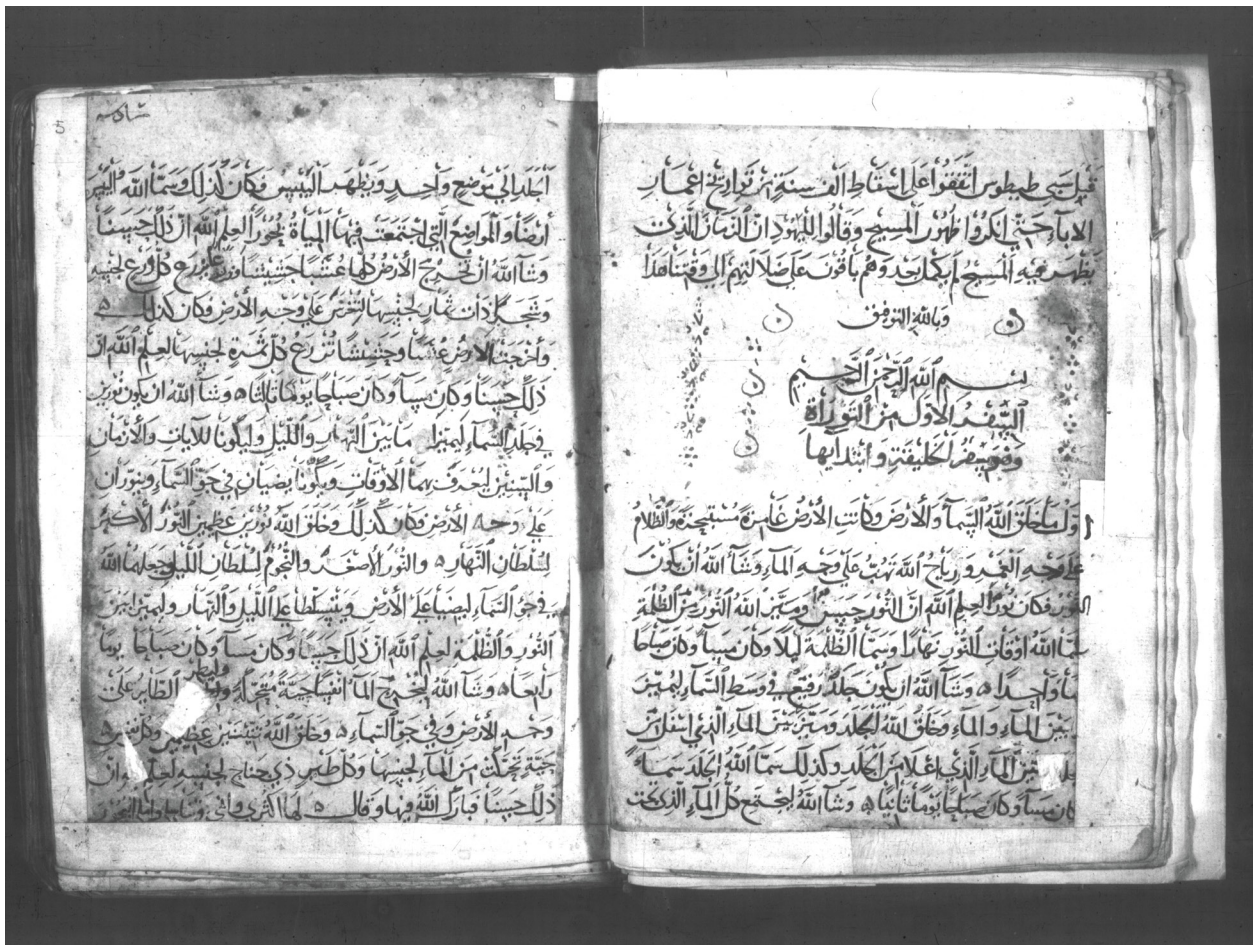 قبل سبي طيطوس اتفقوا على اسقاط الف سنة من تواريخ اعمار
الاباء حتى انكروا ظهور المسيح وقالوا لليهود ان الزمان الذي
يظهر فيه المسيح لم يكمل بعد وهم باقون على ضلالتهم الى وقتنا هذا
وبالله التوفيق
بسم الله الرحمن الرحيم
السفر الاول من التوراة
وهو سفر الخليقة وابتدايها
اول ما خلق الله السماء والارض وكانت الارض غامرة مستبحرة والظلام
على وجه الغمر ورياح الله تهب على وجه الماء وشاء الله ان يكون
النور فكان نورا لعلم الله ان النور حسن وميز الله النور من الظلمة
سما الله اوقات النور نهارا وسما الظلمة ليلا وكان مسا وكان صباحا
يوما واحدا ٥ وشاء الله ان يكون جلد رقيع في وسط السماء ليميز
بين الماء والماء وخلق الله الجلد وميز بين الماء الذي اسفل من
الجلد وبين الماء الذي اعلا من الجلد وكذلك سما الله الجلد سماء
كان مسا وكان صباحا يوما ثانيا ٥ وشاء الله ليجتمع كل الماء الذي تحت
5 سادسه
الجلد الي موضع واحد ويظهر اليبس وكان كذلك وسما الله اليبس
ارضا والمواضع التي اجتمعت فيها المياة بحورا لعلم الله ان ذلك حسنا
وشاء الله ان تخرج الارض كلها عشبا حشيشا يزرع كل زرع لجنسه
وشجر كل ذات ثمار لجنسها لتغترس على وجه الارض وكان كذلك ٥
واخرجت الارض عشبا وحشيشا تزرع كل ثمرة لجنسها لعلم الله ان
ذلك حسنا وكان مسا وكان صباحا يوما ثالثا ٥ وشاء الله ان يكون نورين
في جلد السماء ليميزا ما بين النهار والليل وليكونا للايات والازمان
والسنين ليعرف بهما الاوقات ويكونا يضيان في جو السماء وينوران
على وجه الارض فكان كذلك وخلق الله نورين عظيمين النور الاكبر
لسلطان النهار ٥ والنور الاصغر والنجوم لسلطان الليل وجعلهما الله
في جو السماء ليضيا على الارض ويتسلطا على الليل والنهار وليميزا بين
النور والظلمة لعلم الله ان ذلك حسنا وكان مسا وكان صباحا يوما
رابعا ٥ وشاء الله ليخرج الماء انفسا حية متحركة وليطير الطاير على
وجه الارض وفي جو السماء ٥ وخلق الله تنينين عظيمين وكل نفس
حية تحركت من الماء لجنسها وكل طير ذي جناح لجنسه لعلم الله ان
ذلك حسنا فبارك الله فيها وقال ٥ لها اكثري وانمي واملي البحور